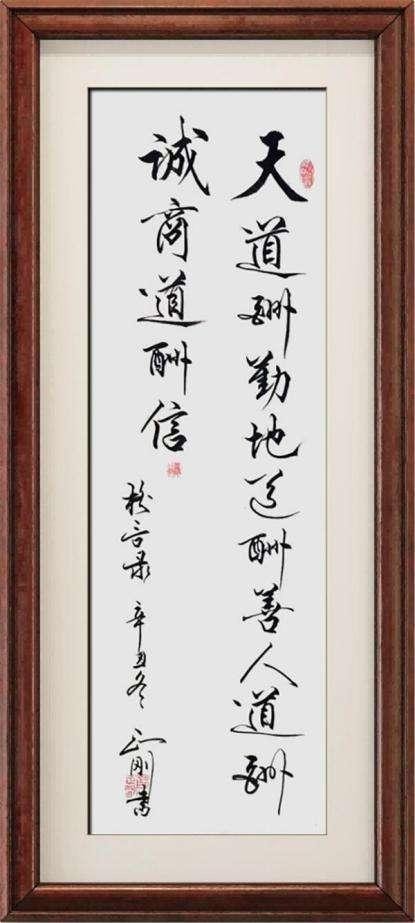 天道酬勤地道酬善人道酬
诚商道酬信
格言录 辛丑冬 正刚书